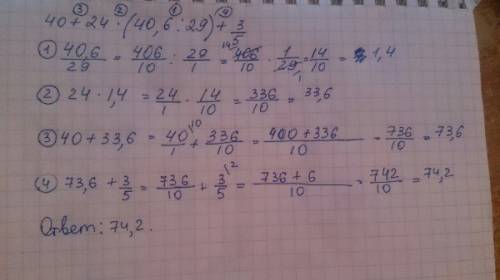 ③ ② ① ④
40 + 24 · (40,6 : 29) + 3/5
① 40,6/29 = 406/10 : 29/1 = 14 406/10 · 1/29 1 = 14/10 = 1,4
② 24 · 1,4 = 24/1 · 14/10 = 336/10 = 33,6
③ 40 + 33,6 = 40/1 \10 + 336/10 = 400 + 336/10 = 736/10 = 73,6
④ 73,6 + 3/5 = 736/10 + 3/5 \2 = 736 + 6/10 = 742/10 = 74,2
Ответ: 74,2.